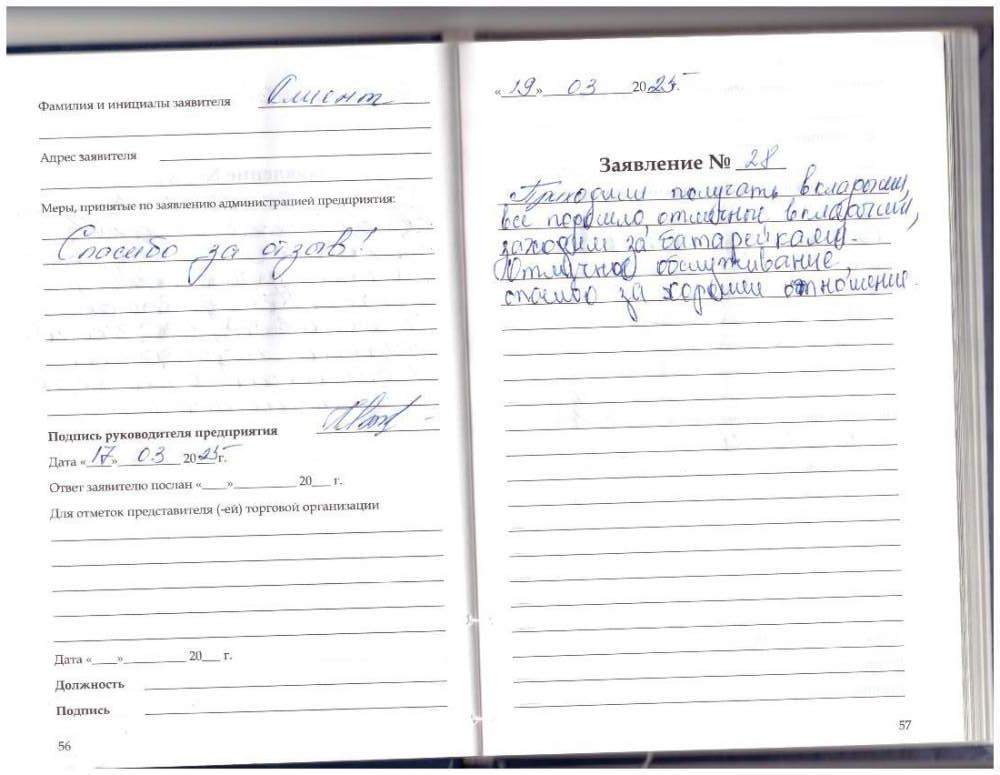 Фамилия и инициалы заявителя Клиент
Адрес заявителя
Меры, принятые по заявлению администрацией предприятия:
Спасибо за отзыв!
Подпись руководителя предприятия
Дата «17» 03 2025 г.
Ответ заявителю послан «____»__________ 20___ г.
Для отметок представителя (-ей) торговой организации
Дата «____»__________ 20___ г.
Должность
Подпись
56
«19» 03 2025г.
Заявление № 28
Приходили получать вкладыши,
все подошло, отличные вкладыши,
заходим за батарейками.
Отличное обслуживание,
спасибо за хорошее отношение.
57